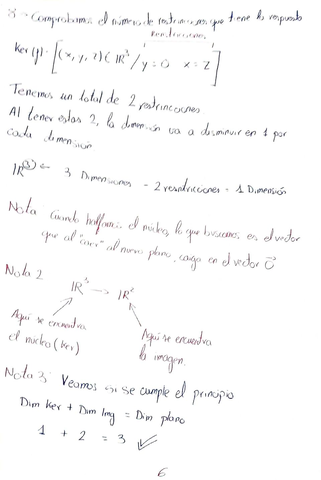 3 - Comprobamos el número de restricciones que tiene la respuesta
restricciones
Ker(f) = [(x, y, z) ∈ IR³ / y = 0 x = z]
Tenemos un total de 2 restricciones
Al tener estas 2, la dimensión va a disminuir en 1 por
cada dimensión
IR³ ← 3 Dimensiones - 2 restricciones = 1 Dimensión
Nota: Cuando hallamos el núcleo, lo que buscamos es el vector
que al "caer" al nuevo plano, caiga en el vector 0⃗
Nota 2
IR³ → IR²
Aquí se encuentra
el núcleo (Ker)
Aquí se encuentra
la imagen.
Nota 3: Veamos si se cumple el principio
Dim Ker + Dim Img = Dim plano
1 + 2 = 3 ✓
6